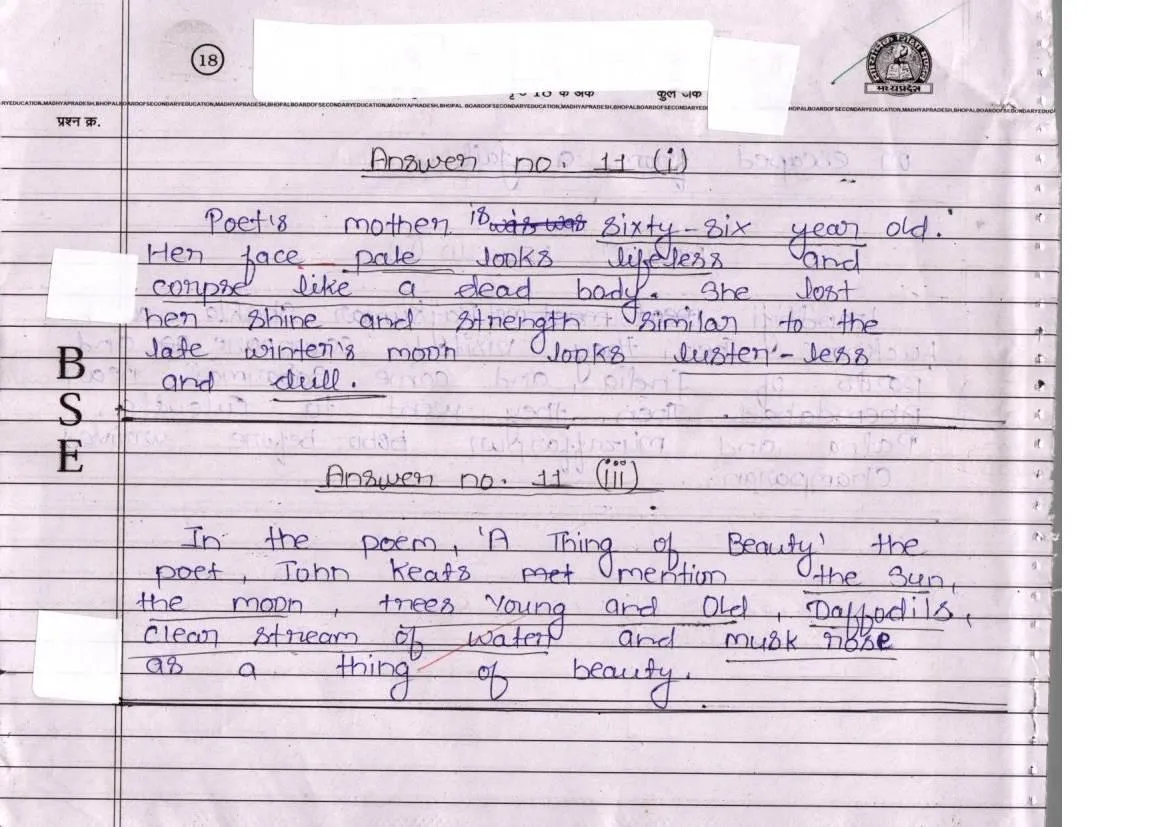 18
कुल अंक
BOARDOFSECONDARYEDUCATION,MADHYAPRADESH,BHOPAL BOARDOFSECONDARYEDUCATION,MADHYAPRADESH,BHOPAL BOARDOFSECONDARYEDUCATION,MADHYAPRADESH,BHOPAL
मध्यप्रदेश
प्रश्न क्र.
Answer no. 11 (i)
Poet's mother is sixty-six year old.
Her face pale looks lifeless and
corpse like a dead body. She lost
her shine and strength similar to the
late winter's moon looks luster-less
and dull.
BSE
Answer no. 11 (iii)
In the poem, 'A Thing of Beauty' the
poet, John Keats met mention the Sun,
the moon, trees Young and Old, Daffodils,
Clear stream of water and musk rose
as a thing of beauty.